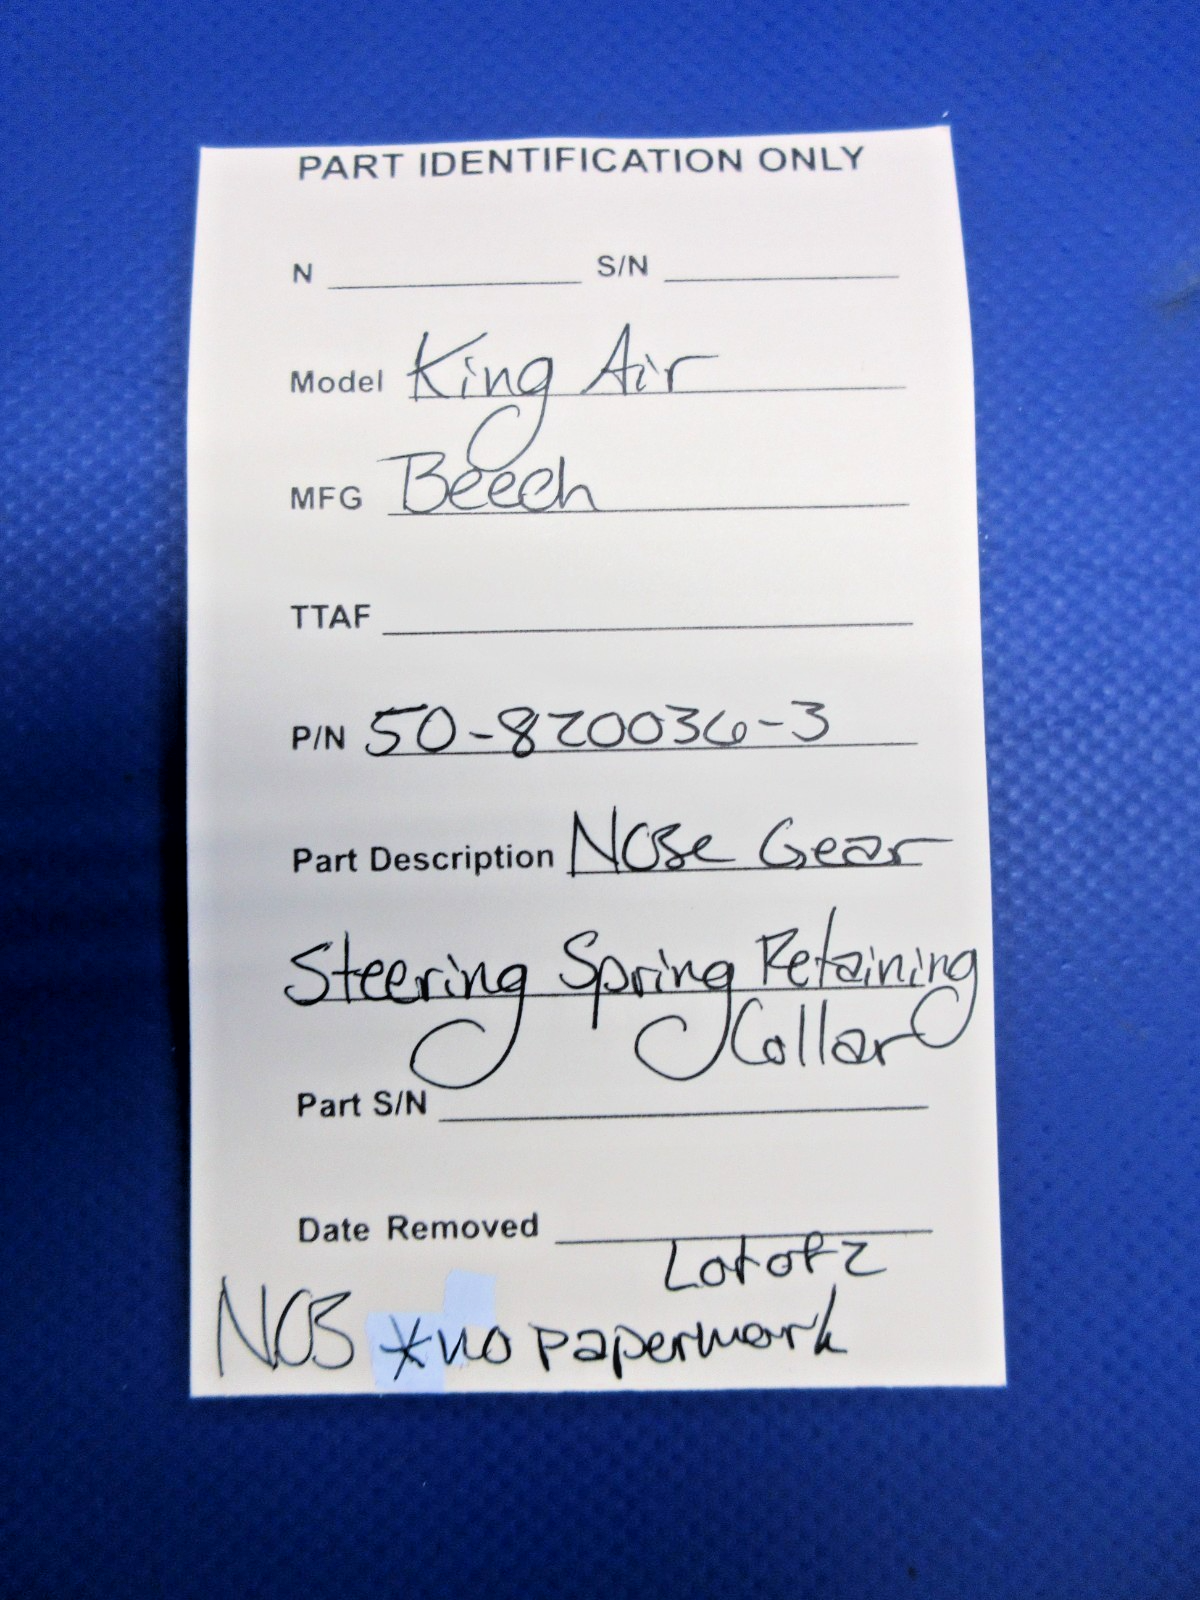 PART IDENTIFICATION ONLY
N S/N
Model King Air
MFG Beech
TTAF
P/N 50-820036-3
Part Description Nose Gear
Steering Spring Retaining
Collar
Part S/N
Date Removed
Lot of 2
NOS *no paperwork